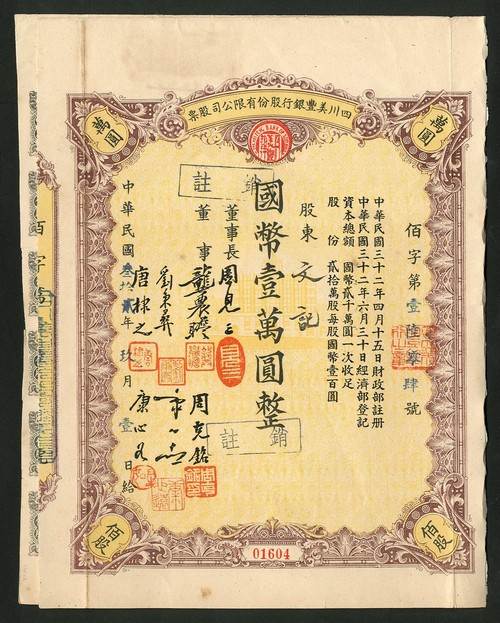 四川美豐銀行股份有限公司股票
萬圓
萬圓
中華民國三十二年四月十五日財政部註册
中華民國三十二年六月三十日經濟部登記
資本總額 國幣貳千萬圓一次收足
股份 貳拾萬股每股國幣壹百圓
佰字第壹陸零肆號
股東 文記
國幣壹萬圓整
註銷
註銷
董事長 周見三
董事 龔農瞻
周克銘
劉秉彝
唐棣之
康心如
中華民國叁拾貳年玖月壹日給
佰字
佰股
佰股
01604